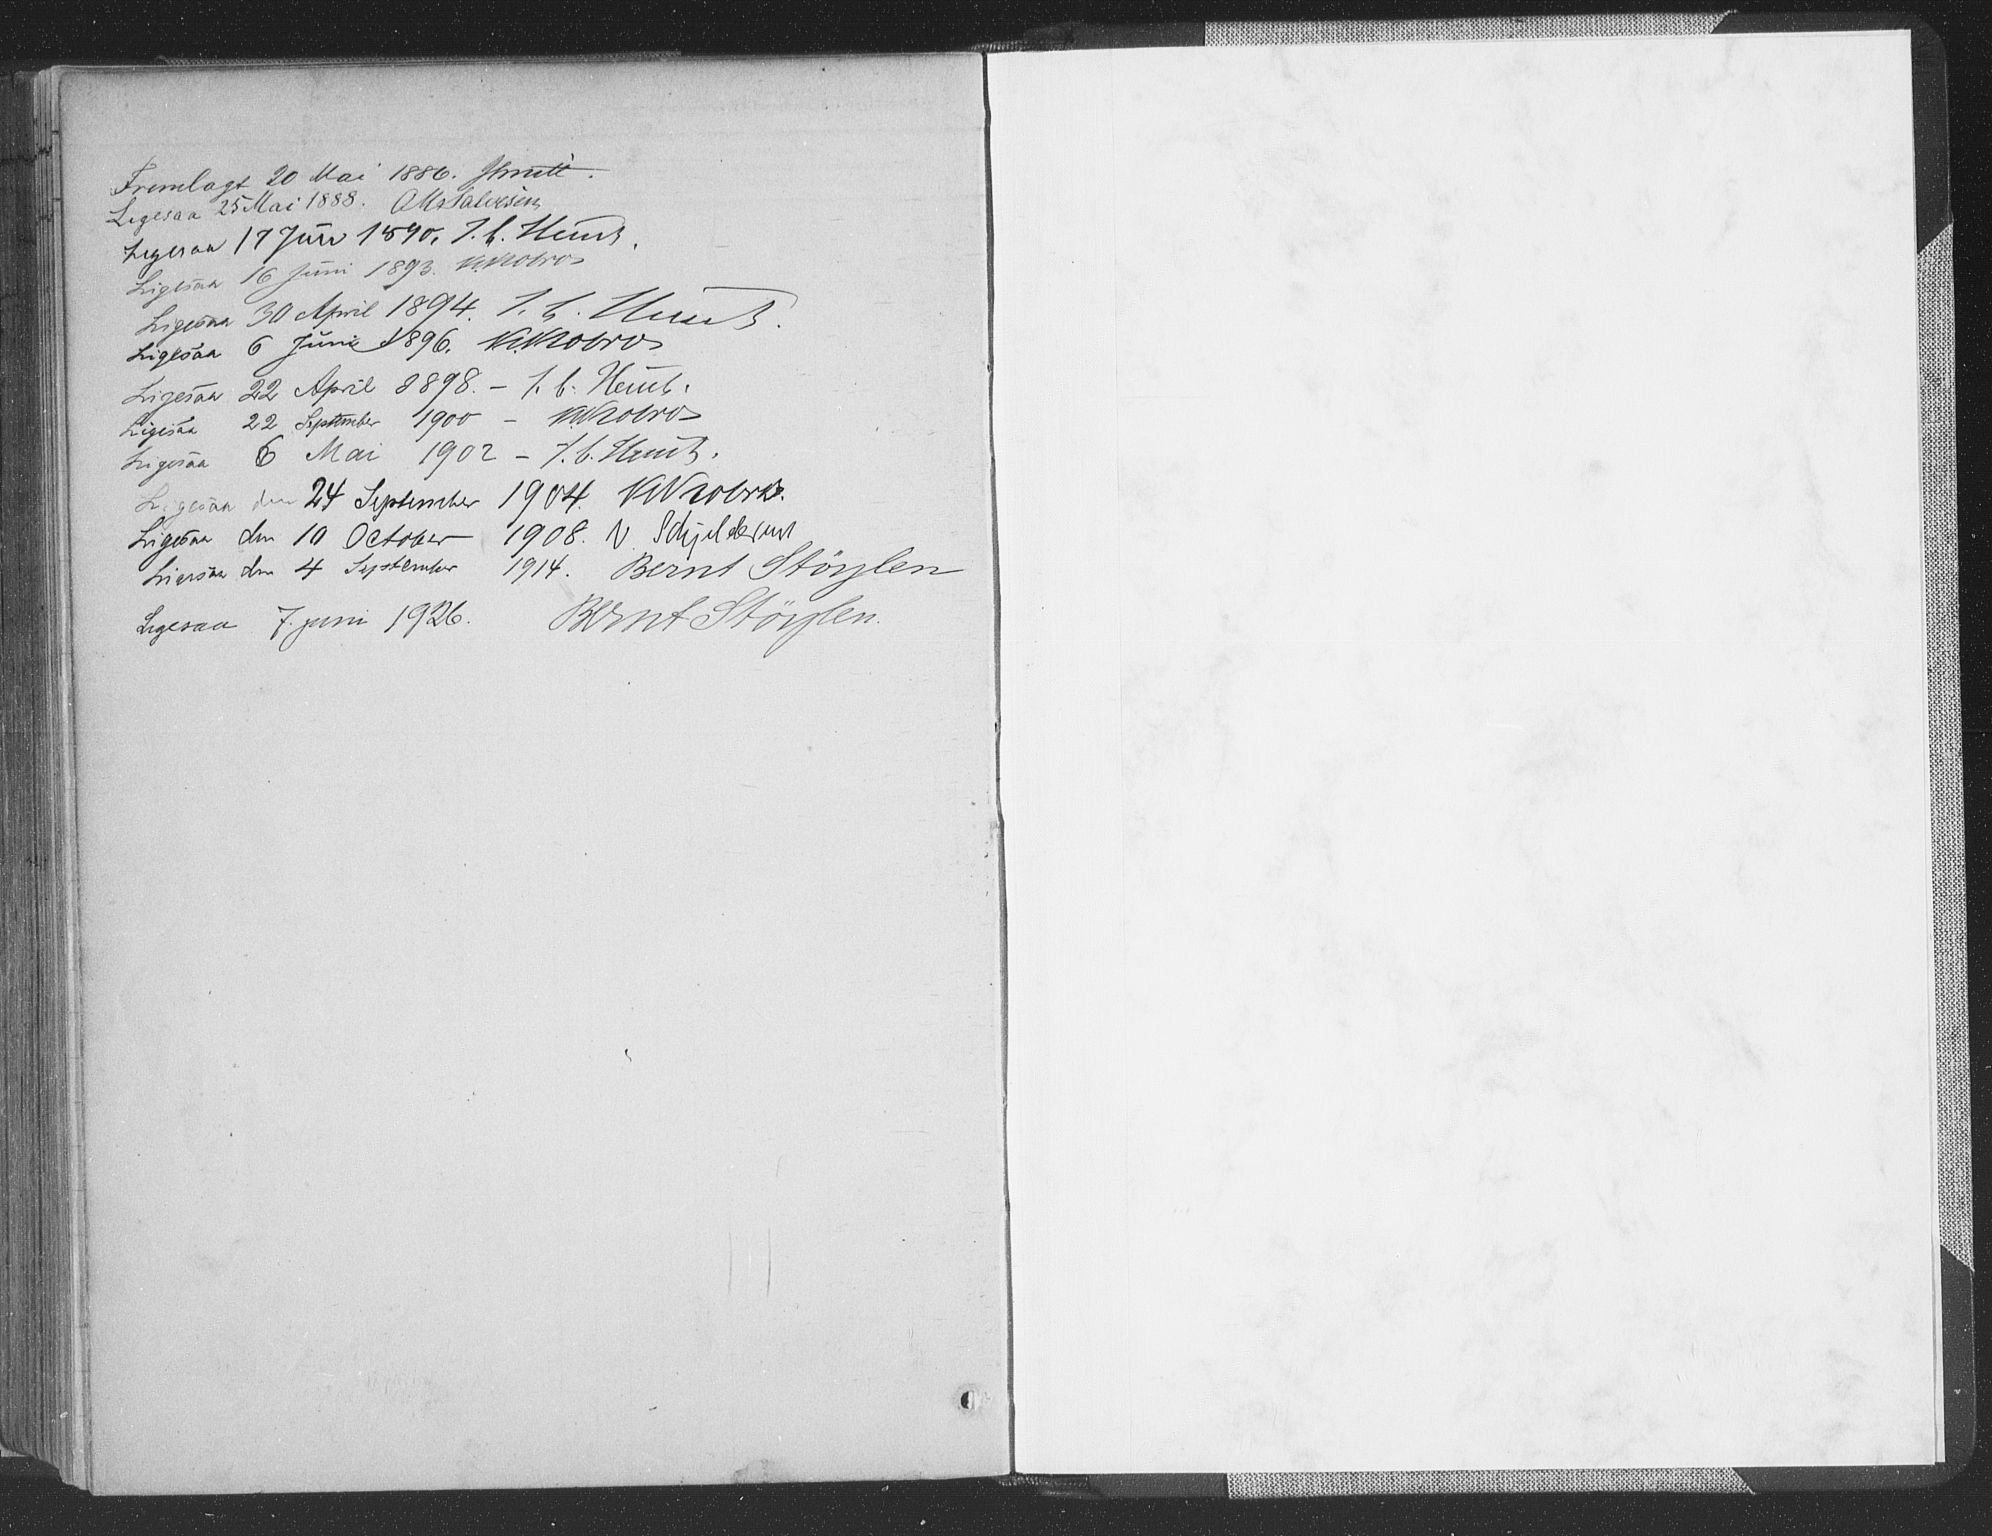 Fremlagt 20 Mai 1886.
Ligesaa 25 Mai 1888. Salvesen
Ligesaa 17 Juni 1890. J. C. Heuch.
Ligesaa 16 Juni 1893.
Ligesaa 30 April 1894. J. C. Heuch.
Ligesaa 6 Juni 1896.
Ligesaa 22 April 1898. – J. C. Heuch.
Ligesaa 22 September 1900 –
Ligesaa 6 Mai 1902 – J. C. Heuch.
Ligesaa den 24 September 1904.
Ligesaa den 10 October 1908. N Schjelderup
Ligesaa den 4 September 1914. Bernt Støylen
Ligesaa 7. juni 1926. Bernt Støylen.